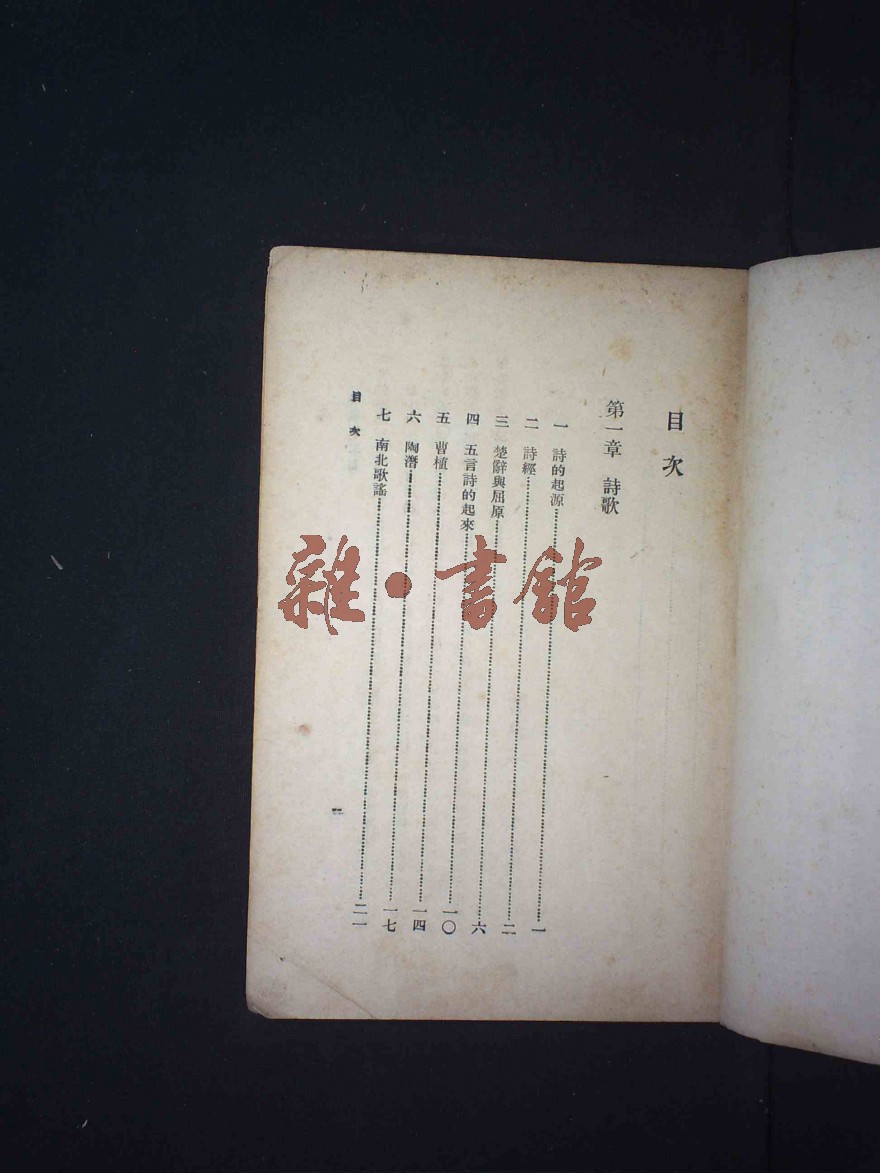 目次
第一章 詩歌
一 詩的起源 一
二 詩經 二
三 楚辭與屈原 六
四 五言詩的起來 一〇
五 曹植 一四
六 陶潛 一七
七 南北歌謠 二一
目次
雜·書館